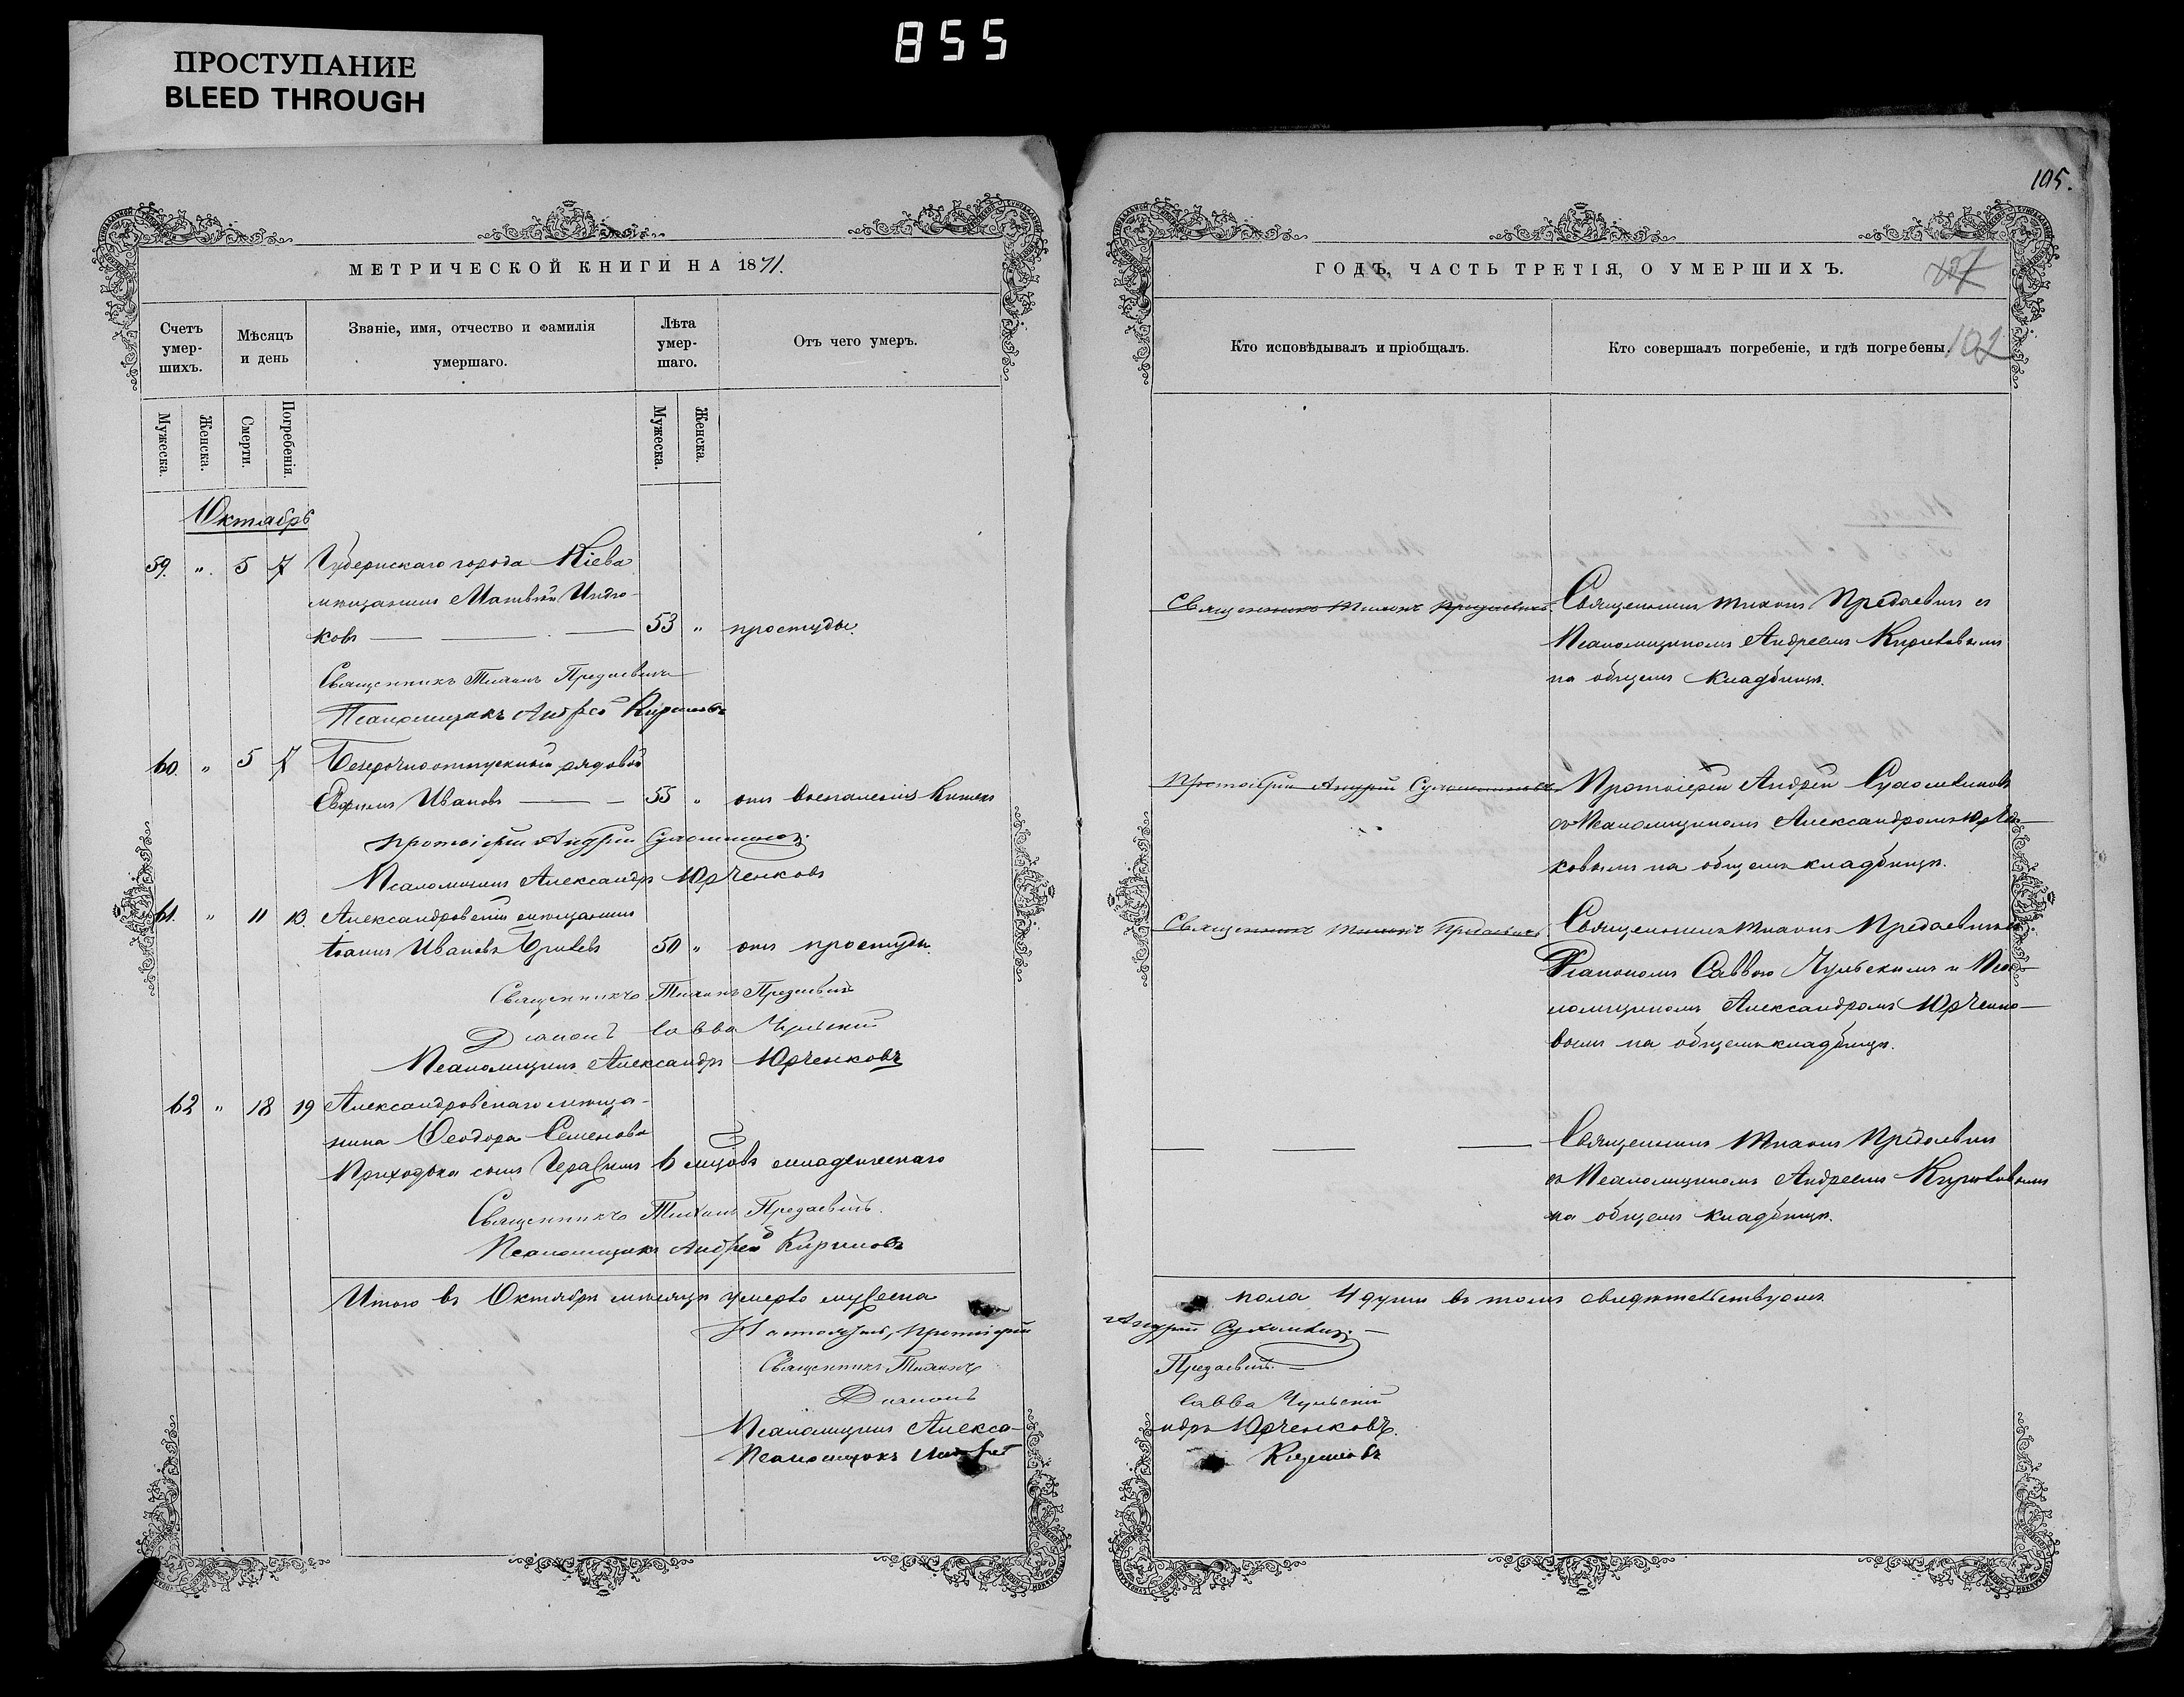 855
ПРОСТУПАНИЕ
BLEED THROUGH
МЕТРИЧЕСКОЙ КНИГИ НА 1871.
Счетъ умер-шихъ.
Мѣсяцъ и день
Званіе, имя, отчество и фамилія умершаго.
Лѣта умер-шаго.
Отъ чего умеръ.
Мужеска.
Женска.
Смерти.
Погребенія.
Мужеска.
Женска.
Октябрь
59. " 5 7 Губернскаго города Кіева
мѣщанинъ Матвѣй
ковъ 53 " простуды.
Священникъ Тихонъ Предаевичъ
Псаломщикъ Андрей Кириловъ
60. " 5 7 Безсрочноотпускный рядовой
Ефимъ Ивановъ 55 " отъ воспаленія кишекъ
протоіерей Андрей Сухомлиновъ
Псаломщикъ Александръ Юрченковъ
61. " 11 13. Александровскій мѣщанинъ
Іоаннъ Ивановъ 50 " отъ простуды.
Священникъ Тихонъ Предаевичъ
Діаконъ Савва Чульскій
Псаломщикъ Александръ Юрченковъ
62 " 18 19 Александровскаго мѣща-
нина Ѳеодора Семенова
Приходька сынъ Герасимъ 6 мѣсяц младенческаго
Священникъ Тихонъ Предаевичъ.
Псаломщикъ Андрей Кириловъ
Итого въ Октябрѣ мѣсяцѣ умерло мужеска
Настоятель, протоіерей
Священникъ Тихонъ
Діаконъ
Псаломщикъ Алекса-
Псаломщикъ Андрей
105.
ГОДЪ, ЧАСТЬ ТРЕТІЯ, О УМЕРШИХЪ.
107
102
Кто исповѣдывалъ и пріобщалъ.
Кто совершалъ погребеніе, и гдѣ погребены.
Священникъ Тихонъ Предаевичъ. Священникъ Тихонъ Предаевичъ съ
Псаломщикомъ Андреемъ Кириловымъ
на общемъ кладбищѣ.
Протоіерей Андрей Сухомлиновъ Протоіерей Андрей Сухомлиновъ
съ Псаломщикомъ Александромъ Юрчен-
ковымъ на общемъ кладбищѣ.
Священникъ Тихонъ Предаевичъ Священникъ Тихонъ Предаевичъ съ
Діакономъ Саввою Чульскимъ и Пса-
ломщикомъ Александромъ Юрченко-
вымъ на общемъ кладбищѣ.
Священникъ Тихонъ Предаевичъ
съ Псаломщикомъ Андреемъ Кириловымъ
на общемъ кладбищѣ.
пола 4 души въ томъ свидѣтельствуемъ
Андрей Сухомлиновъ
Предаевичъ.
Савва Чульскій
ндръ Юрченковъ.
Кириловъ